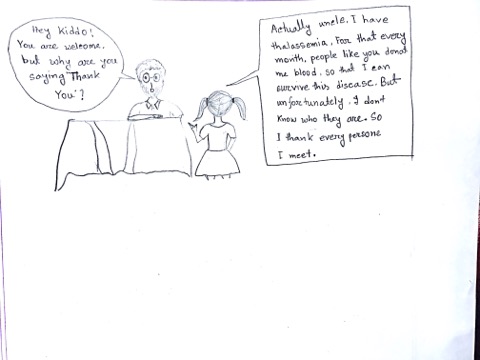 Hey Kiddo!
You are welcome,
but why are you
saying "Thank
You"?
Actually uncle, I have
thalassemia. For that every
month, people like you donat
me blood. So that I can
survive this disease. But
unfortunately, I don't
know who they are. So
I thank every persone
I meet.